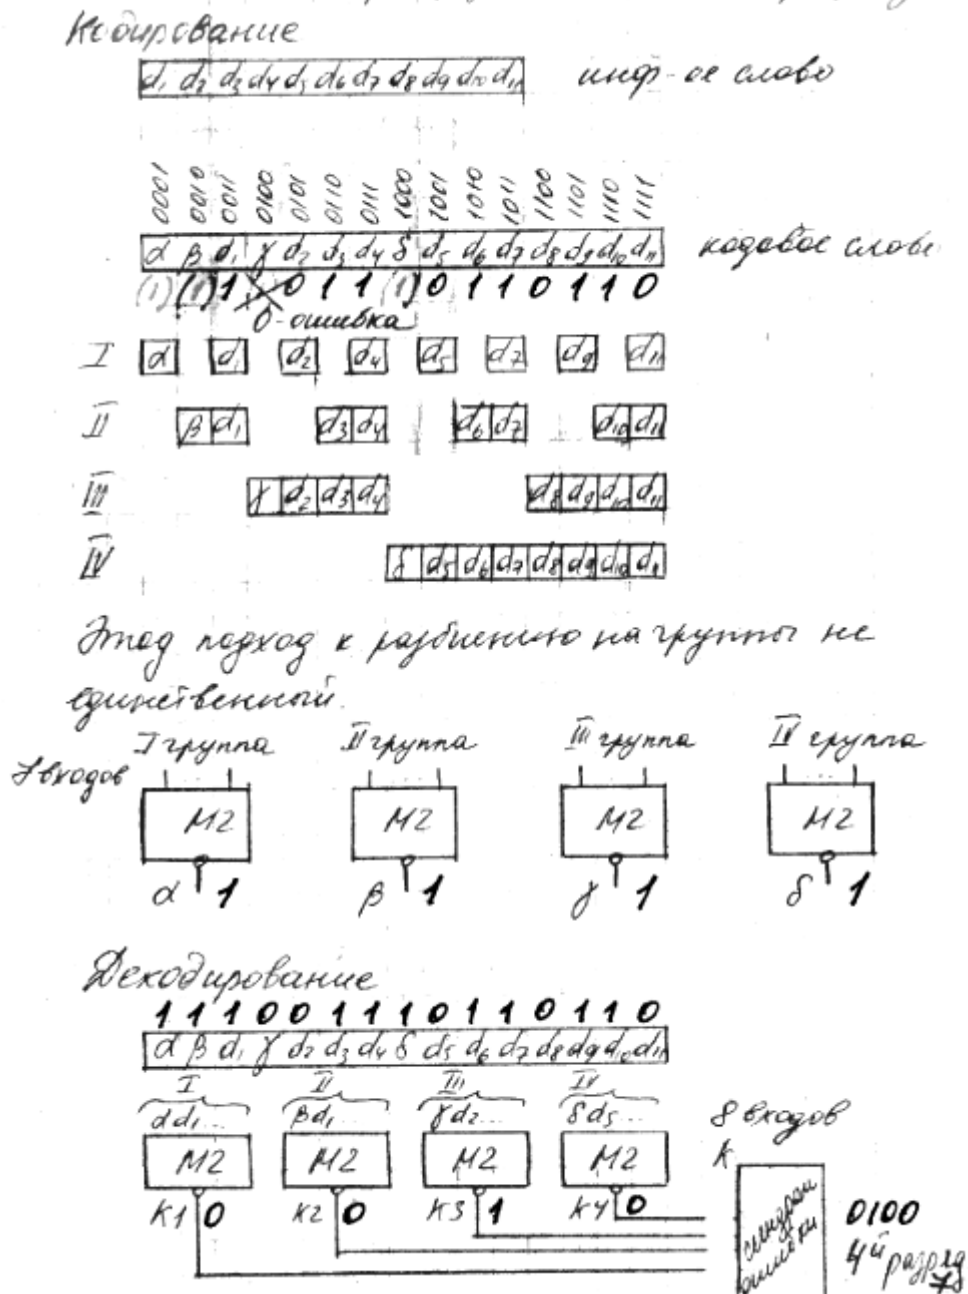 Кодирование
d1 d2 d3 d4 d5 d6 d7 d8 d9 d10 d11 инф-ое слово
0001 0010 0011 0100 0101 0110 0111 1000 1001 1010 1011 1100 1101 1110 1111
α β d1 γ d2 d3 d4 δ d5 d6 d7 d8 d9 d10 d11 кодовое слово
(1) (1) 1 0 1 1 (1) 0 1 1 0 1 1 0
0-ошибка
I α d1 d2 d4 d5 d7 d9 d11
II β d1 d3 d4 d6 d7 d10 d11
III γ d2 d3 d4 d8 d9 d10 d11
IV δ d5 d6 d7 d8 d9 d10 d11
Этод подход к разбиению на группы не
единственный.
I группа II группа III группа IV группа
7 входов
M2 M2 M2 M2
α 1 β 1 γ 1 δ 1
Декодирование
1 1 1 0 0 1 1 1 0 1 1 0 1 1 0
α β d1 γ d2 d3 d4 δ d5 d6 d7 d8 d9 d10 d11
I II III IV
αd1... βd1... γd2... δd5...
8 входов
M2 M2 M2 M2 К
К1 0 К2 0 К3 1 К4 0
синдром
ошибки
0100
4й разряд